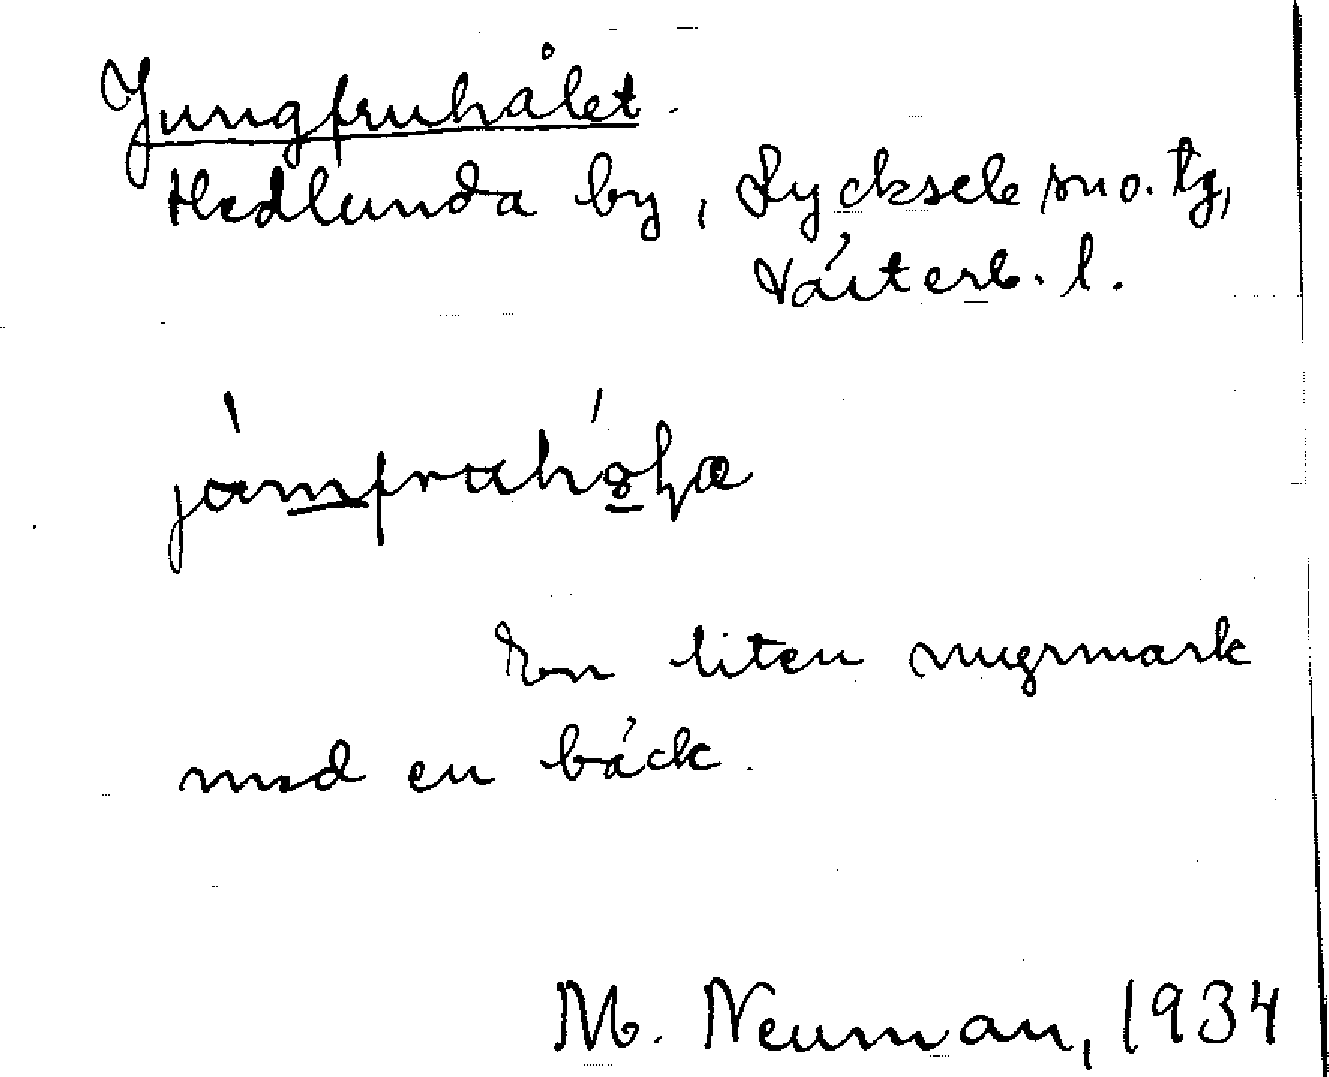 Jungfruhålet.
Hedlunda by, Lycksele sn o. tg,
Västerb. l.
En liten myrmark
med en bäck.
M. Neuman, 1934